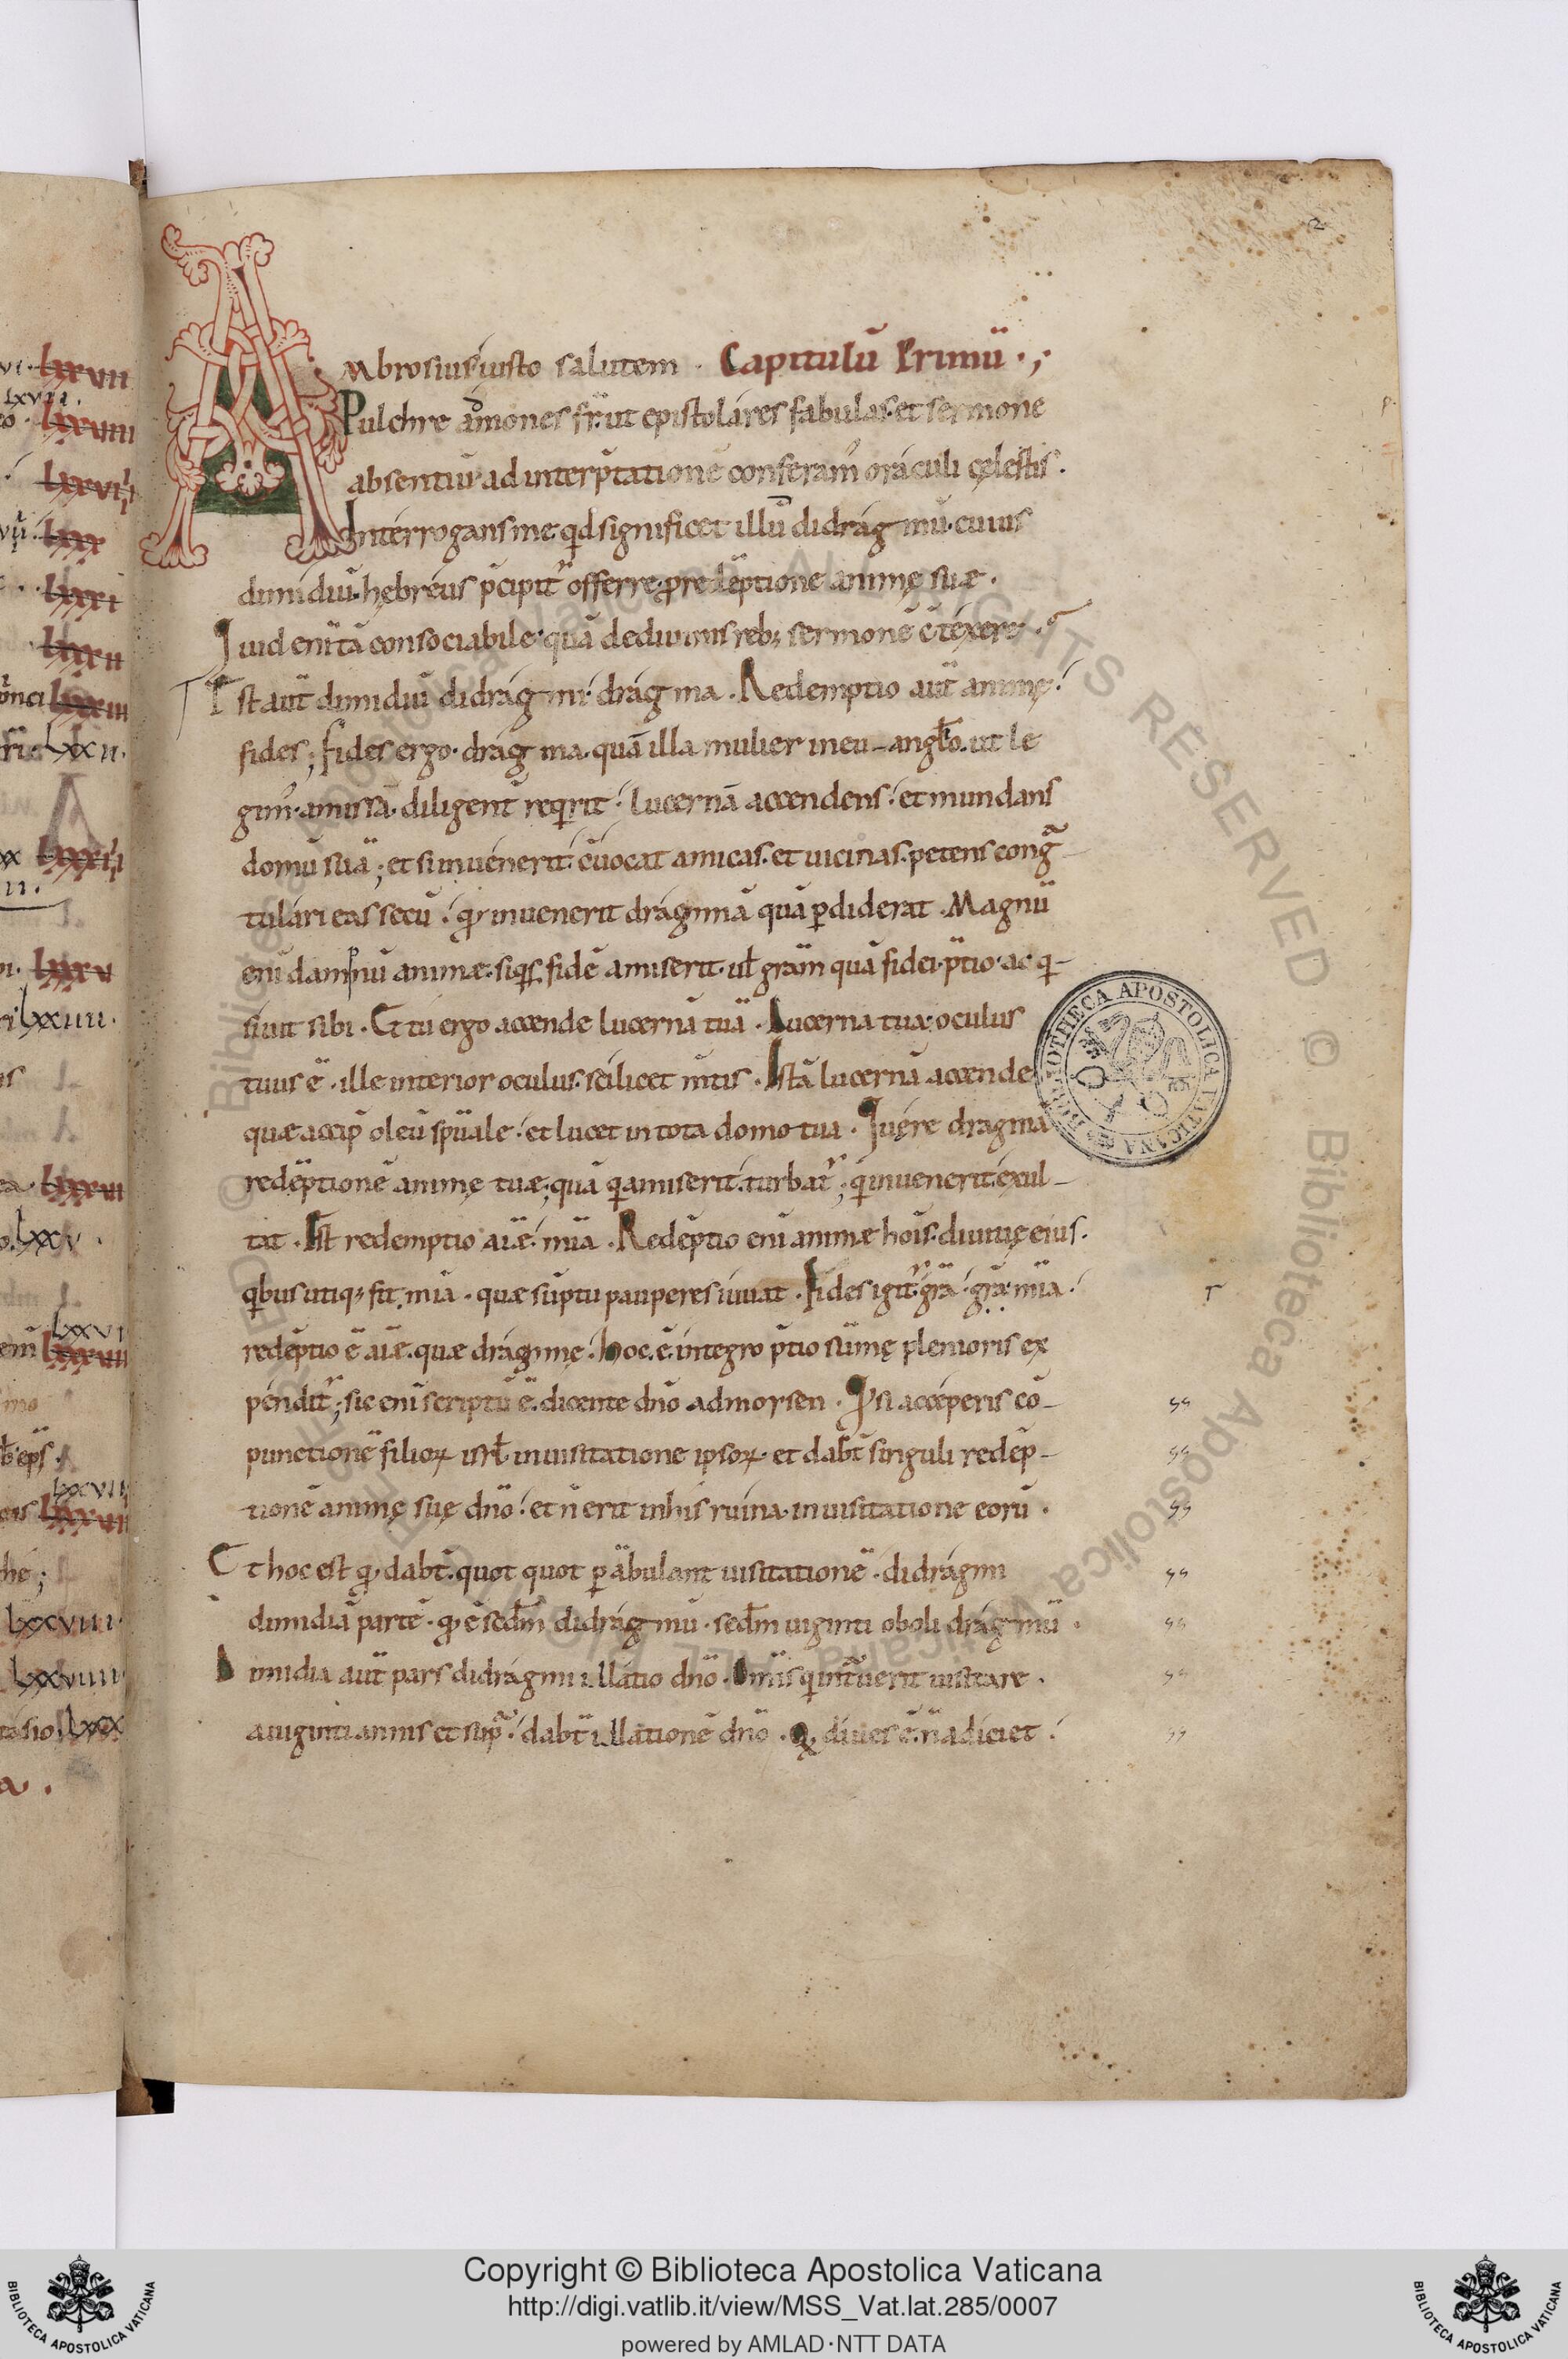 Ambrosius iusto salutem . Capitulū Primū .;
Pulchre am̊ones fr̄. ut epistolares fabulas. et sermone
absentiū ad interp̄tationē conferam᾽ oraculi cęlestis.
Interrogans me. qd significet illū didrag mū. cuius
dimidiū. hebreus p̄cipit᾽ offerre. pro redēptione animę suæ.
Quid enī tā consociabile. quā de diuinis reb; sermonē c̄texere.
Est aut̄ dimidiū didrag mi. drag ma . Redemptio aut̄ animę.
fides; fides ergo. drag ma. quā illa mulier in eu-anglo. ut le
gim᾽. amissā. diligent̄ reqrit. lucernā accendens. et mundans
domū suā; et si inuenerit. c̄uocat amicas. et uicinas. petens cong̃-
tulari eas secū. q inuenerit dragmā quā pdiderat . Magnū
enī dampnū animæ. siqs fidē amiserit. ul gr̄am quā fidei p̄tio. ac q-
siuit sibi . Et tu ergo accende lucernā tuā . Lucerna tua. oculus
tuus ē . ille interior oculus. scilicet m̄tis . Istā lucernā accende
quæ accip̄ oleū sp̄uale. et lucet in tota domo tua . Quęre dragmā
redēptionē animę tuæ; quā q amiserit. turbat᾽; q inuenerit. exul-
tat . Est redemptio aīæ. mīa . Redēptio enī animæ hoīs. diuitię eius.
qbus utiq; fit mīa . quæ sūptu pauperes iuuat . Fides igit᾽. gr̄a. gr̄a. mīa.
redēptio ē aīæ. quæ dragmę. hoc. ē. integro p̄tio sūmę plenioris ex
pendit᾽; sic enī scriptū ē. dicente dn̄o ad moysen . Qsi acceperis cō-
punctionē filioꝝ isrl. in uisitatione ipsoꝝ. et dab̄t singuli redep̄-
tionē animę suę dn̄o. et n̄ erit in his ruina. in uisitatione eorū .
Et hoc est q dab̄t. quot quot p ābulant uisitationē . didragmi
dimidiā partē . q ē sedm̄ didrag mū . sedm̄ uiginti oboli drag mū .
Dimidia aut̄ pars didragmi illatio dn̄o . Om̄is q int̄uerit uisitare .
a uiginti annis et sup̃. dab̄t illationē dn̄o . Q diues ē. n̄ adiciet.
2
BIBLIOTHECA APOSTOLICA VATICANA
© Biblioteca Apostolica Vaticana ALL RIGHTS RESERVED
Copyright © Biblioteca Apostolica Vaticana
http://digi.vatlib.it/view/MSS_Vat.lat.285/0007
powered by AMLAD·NTT DATA
BIBLIOTECA APOSTOLICA VATICANA
BIBLIOTECA APOSTOLICA VATICANA